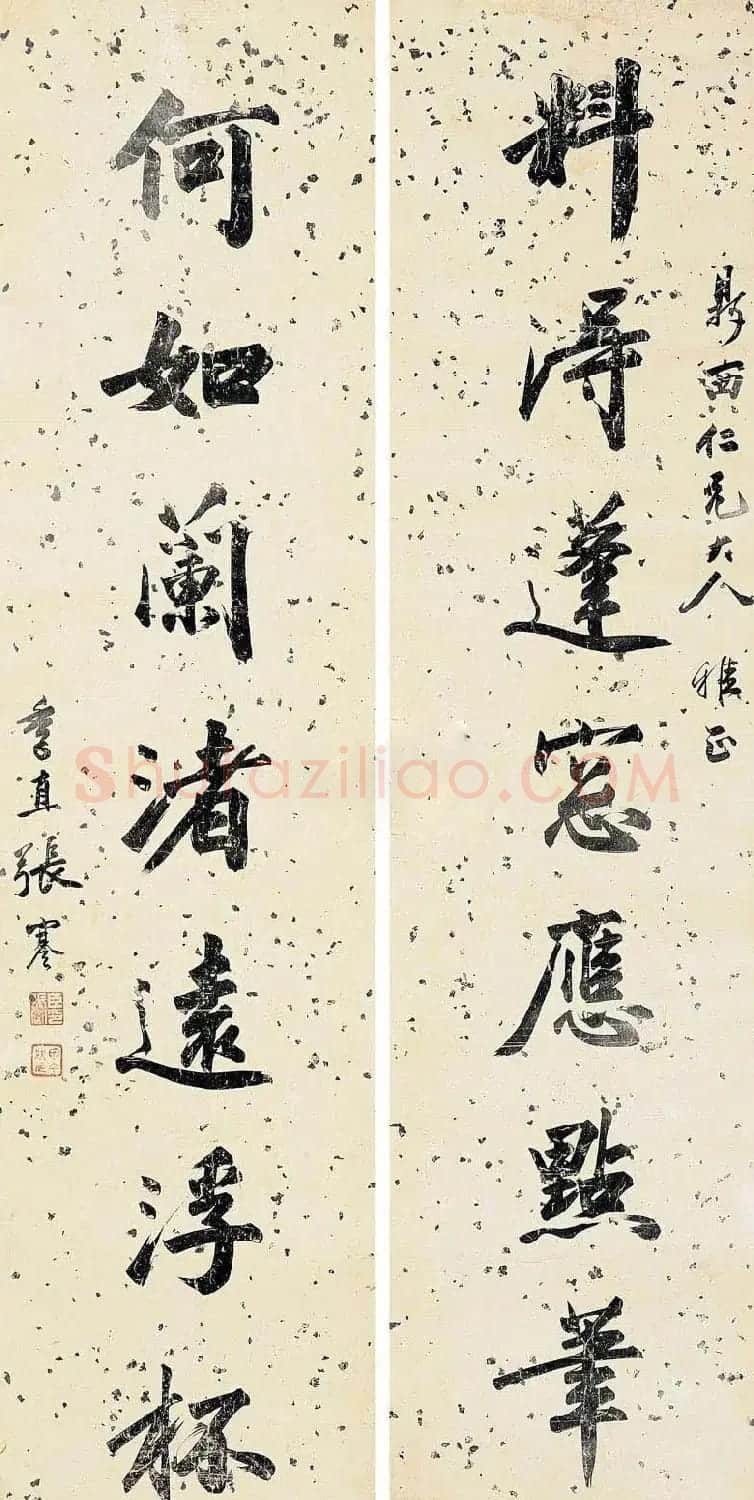 西仁兄大人 雅正
料得蓬窓應點筆
何如蘭渚遠浮杯
季直張謇
Shufaziliao.COM